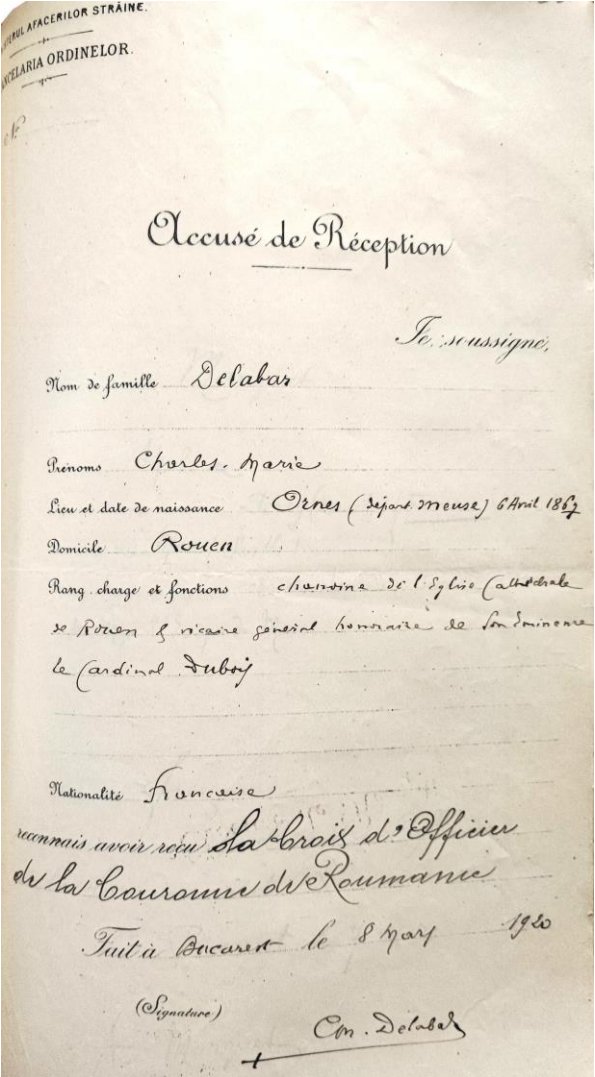 MINISTERUL AFACERILOR STRĂINE.
CANCELARIA ORDINELOR.
No
Accusé de Réception
Je, soussigné,
Nom de famille Delabar
Prénoms Charles-Marie
Lieu et date de naissance Ornes (Départ. Meuse) 6 Avril 1867
Domicile Rouen
Rang, charge et fonctions chanoine de l'Eglise Cathédrale
de Rouen & vicaire général honoraire de Son Eminence
le Cardinal Dubois
Nationalité Française
reconnais avoir reçu la Croix d'Officier
de la Couronne de Roumanie
Fait à Bucarest le 8 Mars 1920
(Signature)
Ch. Delabar